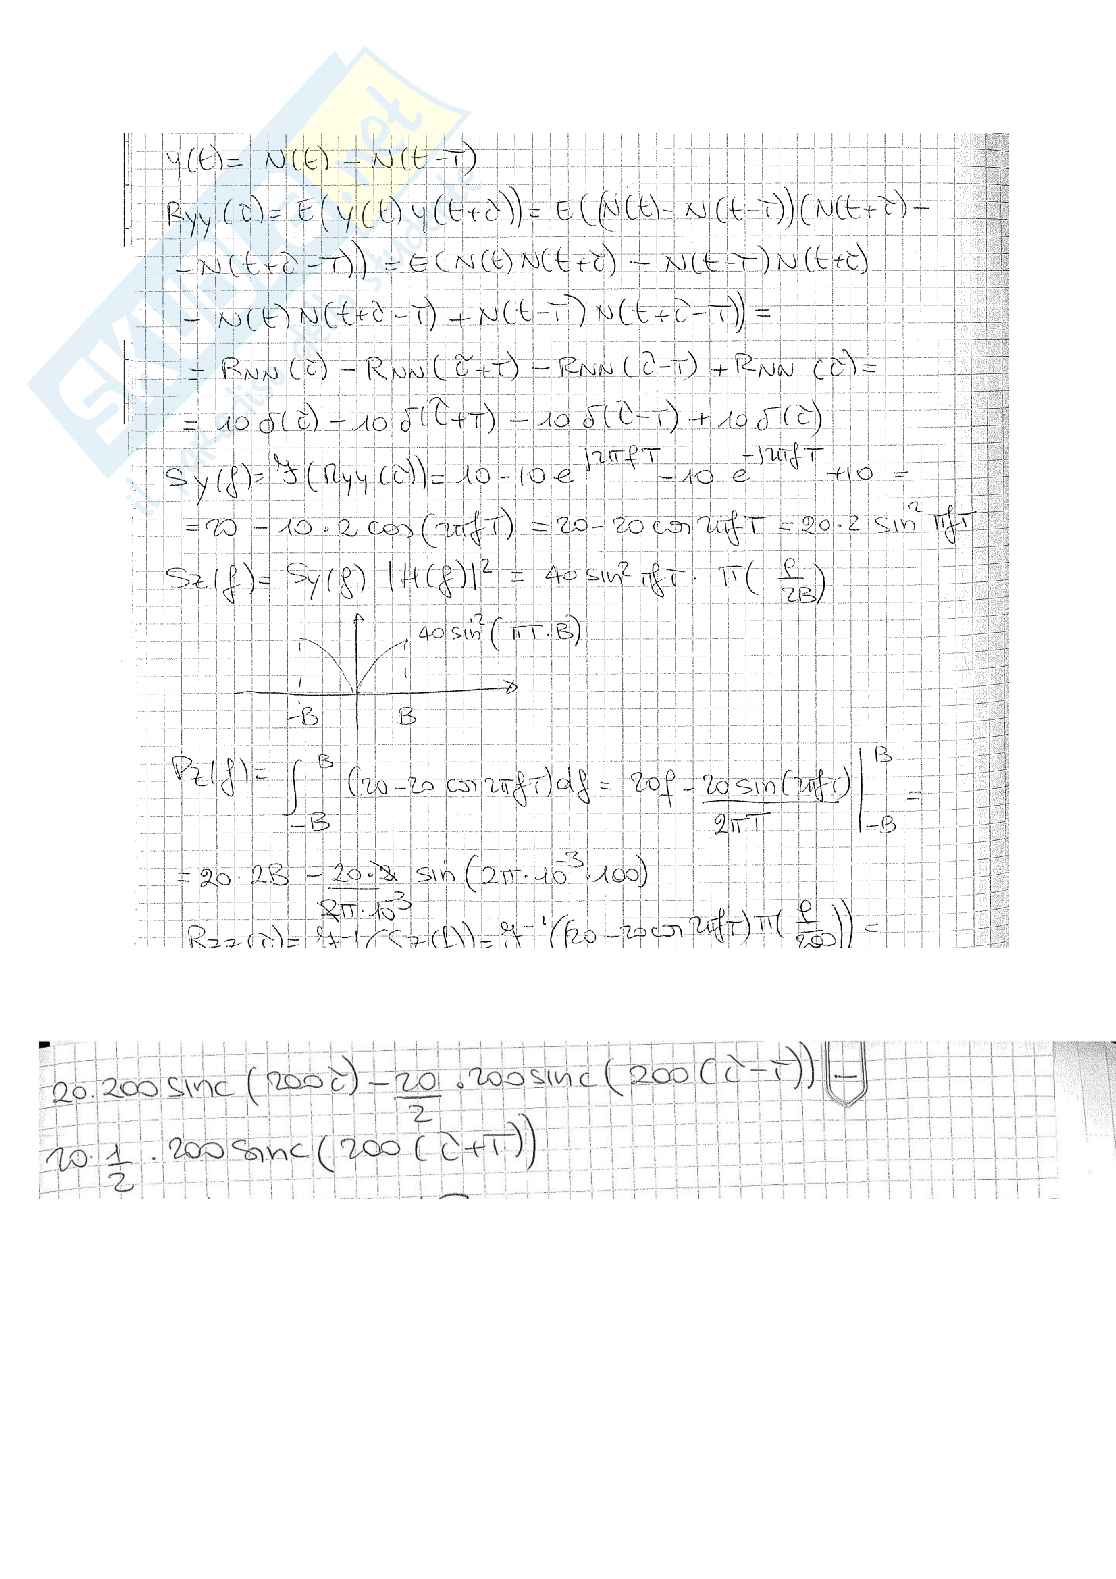 Y(t) = N(t) - N(t-T)
Ryy(τ) = E(Y(t) Y(t+τ)) = E((N(t) - N(t-T))(N(t+τ) -
- N(t+τ-T)) = E(N(t)N(t+τ) - N(t-T)N(t+τ)
- N(t)N(t+τ-T) + N(t-T)N(t+τ-T)) =
= RNN(τ) - RNN(τ+T) - RNN(τ-T) + RNN(τ) =
= 10 δ(τ) - 10 δ(τ+T) - 10 δ(τ-T) + 10 δ(τ)
Sy(f) = F(Ryy(τ)) = 10 - 10 e^{j2πfT} - 10 e^{-j2πfT} + 10 =
= 20 - 10 · 2 cos(2πfT) = 20 - 20 cos 2πfT = 20 · 2 sin² πfT
Sz(f) = Sy(f) |H(f)|² = 40 sin² πfT · π(f/2B)
40 sin²(πT·B)
-B B
Pz(f) = ∫_{-B}^{B} (20 - 20 cos 2πfT) df = 20f - 20 sin(2πfT)/2πT |_{-B}^{B} =
= 20 · 2B - 20·2/2π·10^{-3} sin(2π·10^{-3}·100)
Rzz(τ) = F^{-1}(Sz(f)) = F^{-1}((20 - 20 cos 2πfT) π(f/200)) =
20·200 sinc(200τ) - 20/2 · 200 sinc(200(τ-T)) -
20 · 1/2 · 200 sinc(200(τ+T))